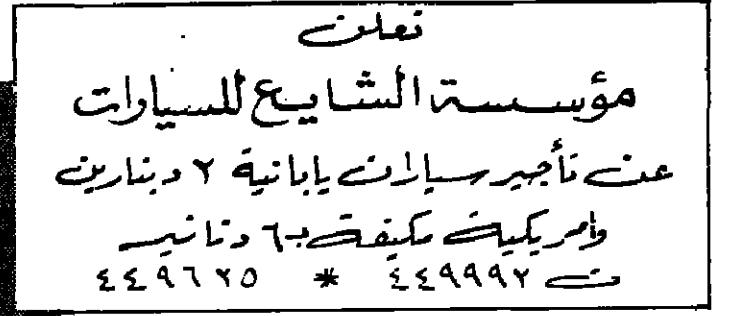 تعلن
مؤسسة الشايع للسيارات
عن تأجير سيارات يابانية ٢ دينارين
وامريكية مكيفة بـ ٦ دنانير
ت ٤٤٩٩٩٢ * ٤٤٩٦٢٥